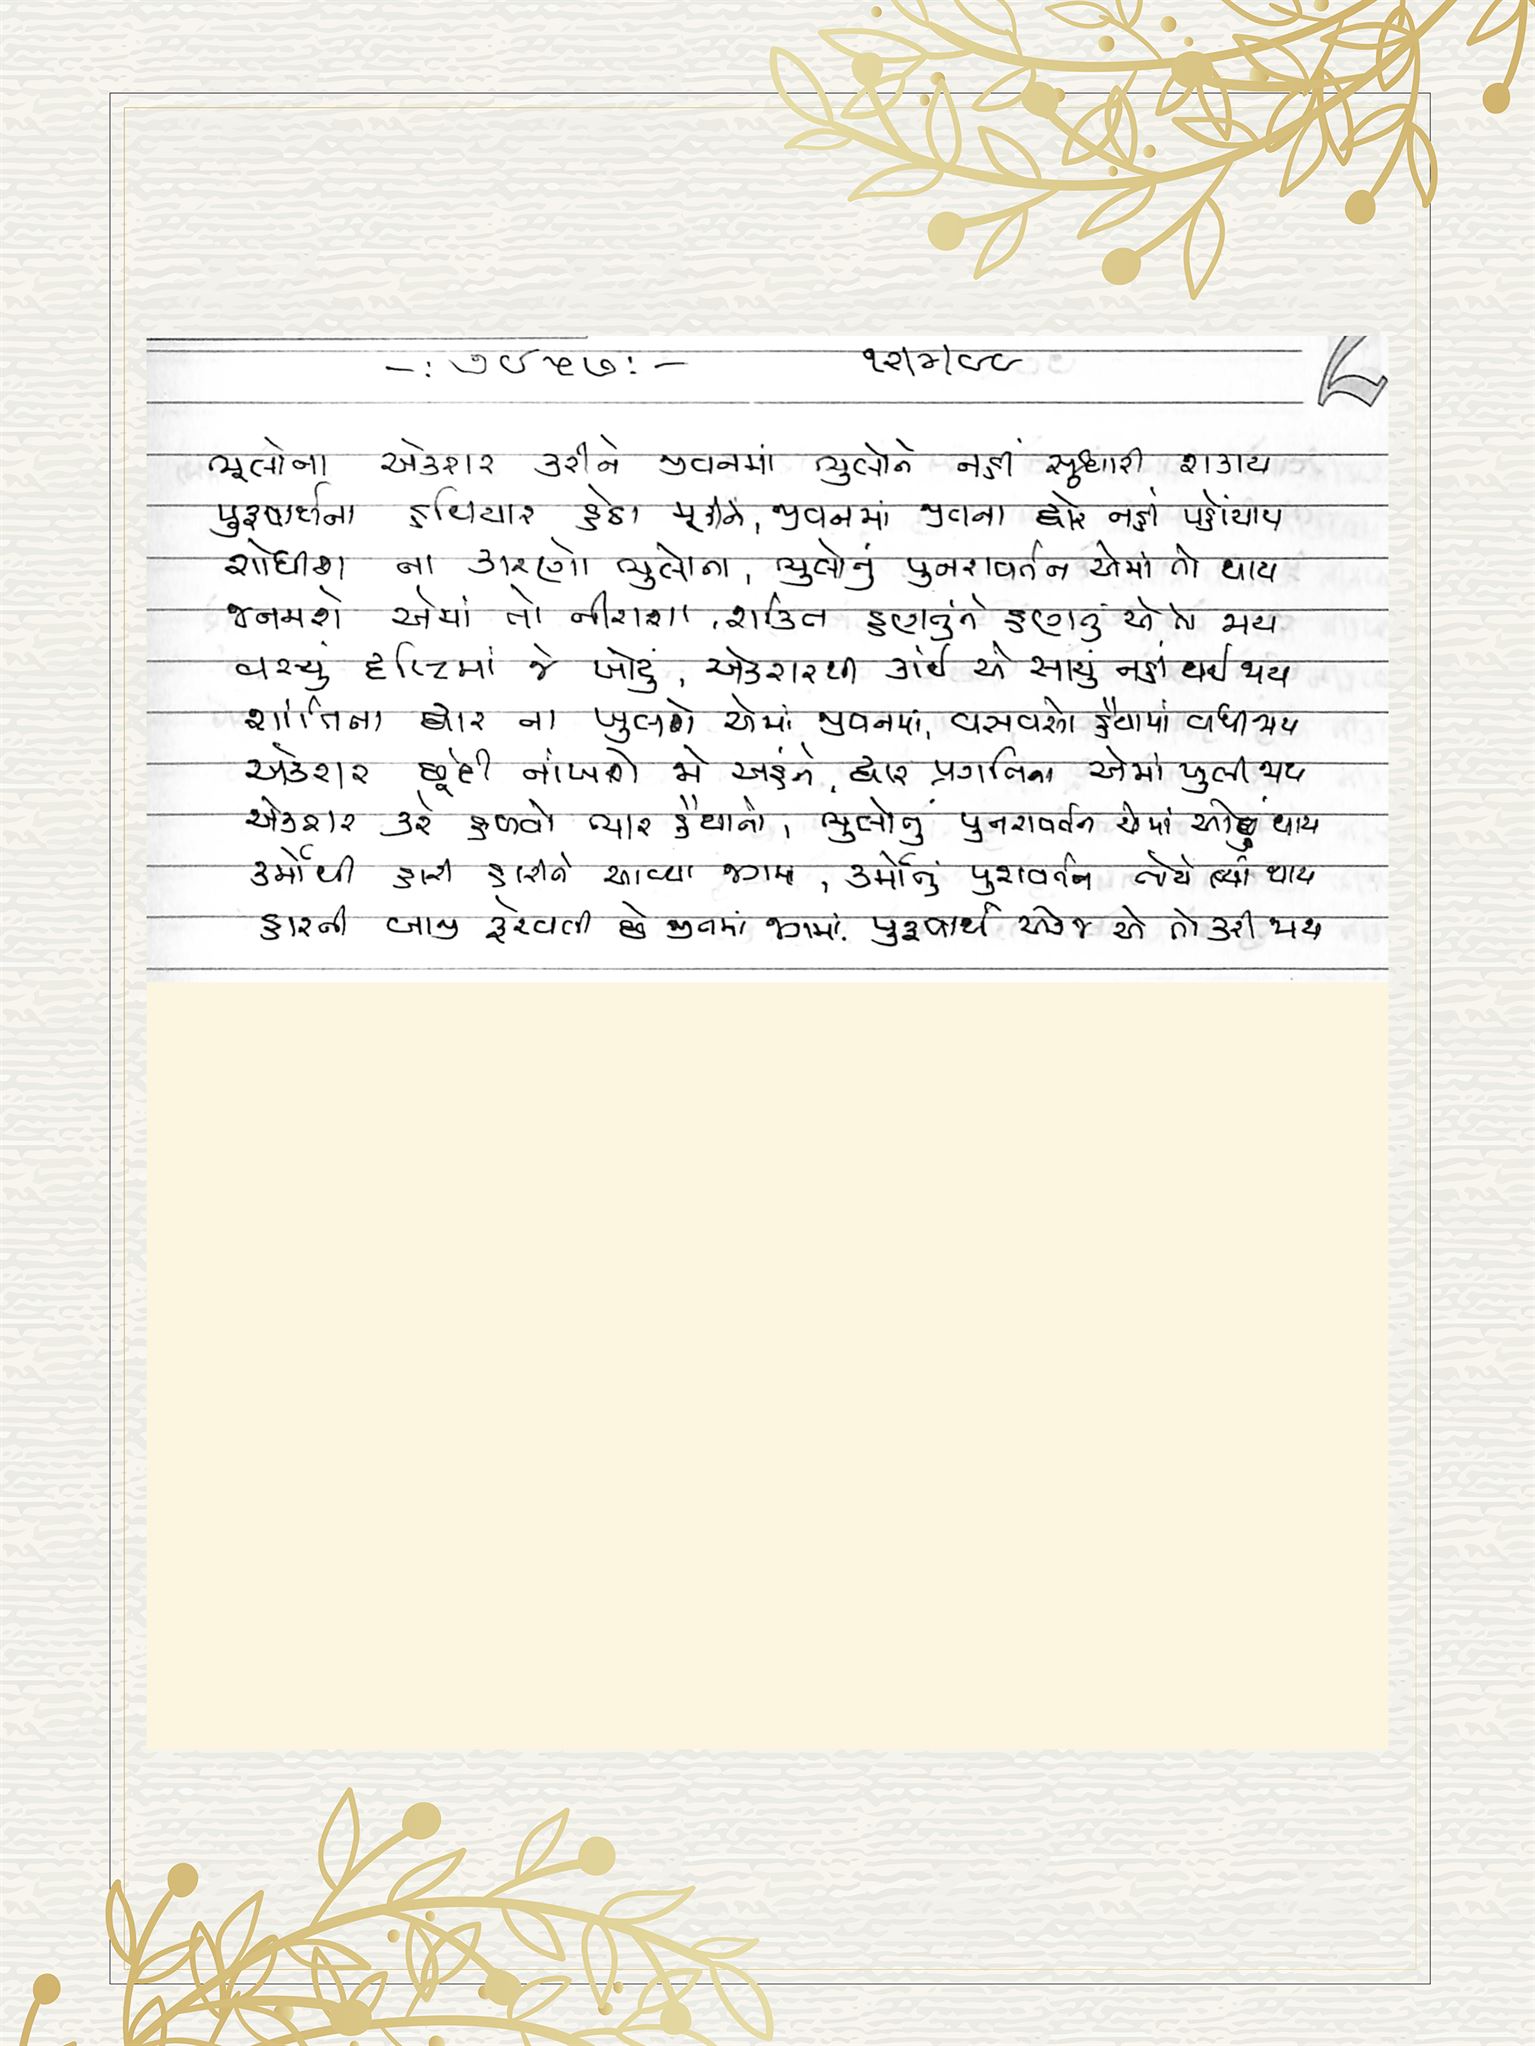 -: ૭૯૫૭ :- ૧૨/૫/૯૯
ભૂલોના એકરાર કરીને જીવનમાં ભુલોને નહીં સુધારી શકાય
પુરૂષાર્થના હથિયાર હેઠા મૂકીને, જીવનમાં જીતના દ્વારે નહીં પહોંચાય
શોધીશ ના કારણો ભુલોના, ભુલોનું પુનરાવર્તન એમાં તો થાય
જનમશે એમાં તો નીરાશા, શક્તિ હણાતુંને હણાતું એ તો જાય
વસ્યું દૃષ્ટિમાં જે ખોટું, એકરારથી કાંઈ એ સાચું નહીં થઈ જાય
શાંતિના દ્વાર ના ખુલશે એમાં જીવનમાં, વસવસો હૈયામાં વધી જાય
એકરાર છૂંદી નાંખશે જો અહંને, દ્વાર પ્રગતિના એમાં ખુલી જાય
એકરાર કરે હળવો ભાર હૈયાનો, ભુલોનું પુનરાવર્તન એમાં ઓછું થાય
કર્મોથી હારી હારીને આવ્યા જગમાં, કર્મોનું પુરાવર્તન જોયે ત્યાં થાય
હારની બાજી ફેરવતી છે જીનમાં જગમાં. પુરૂષાર્થ એકજ એ તો કરી જાય